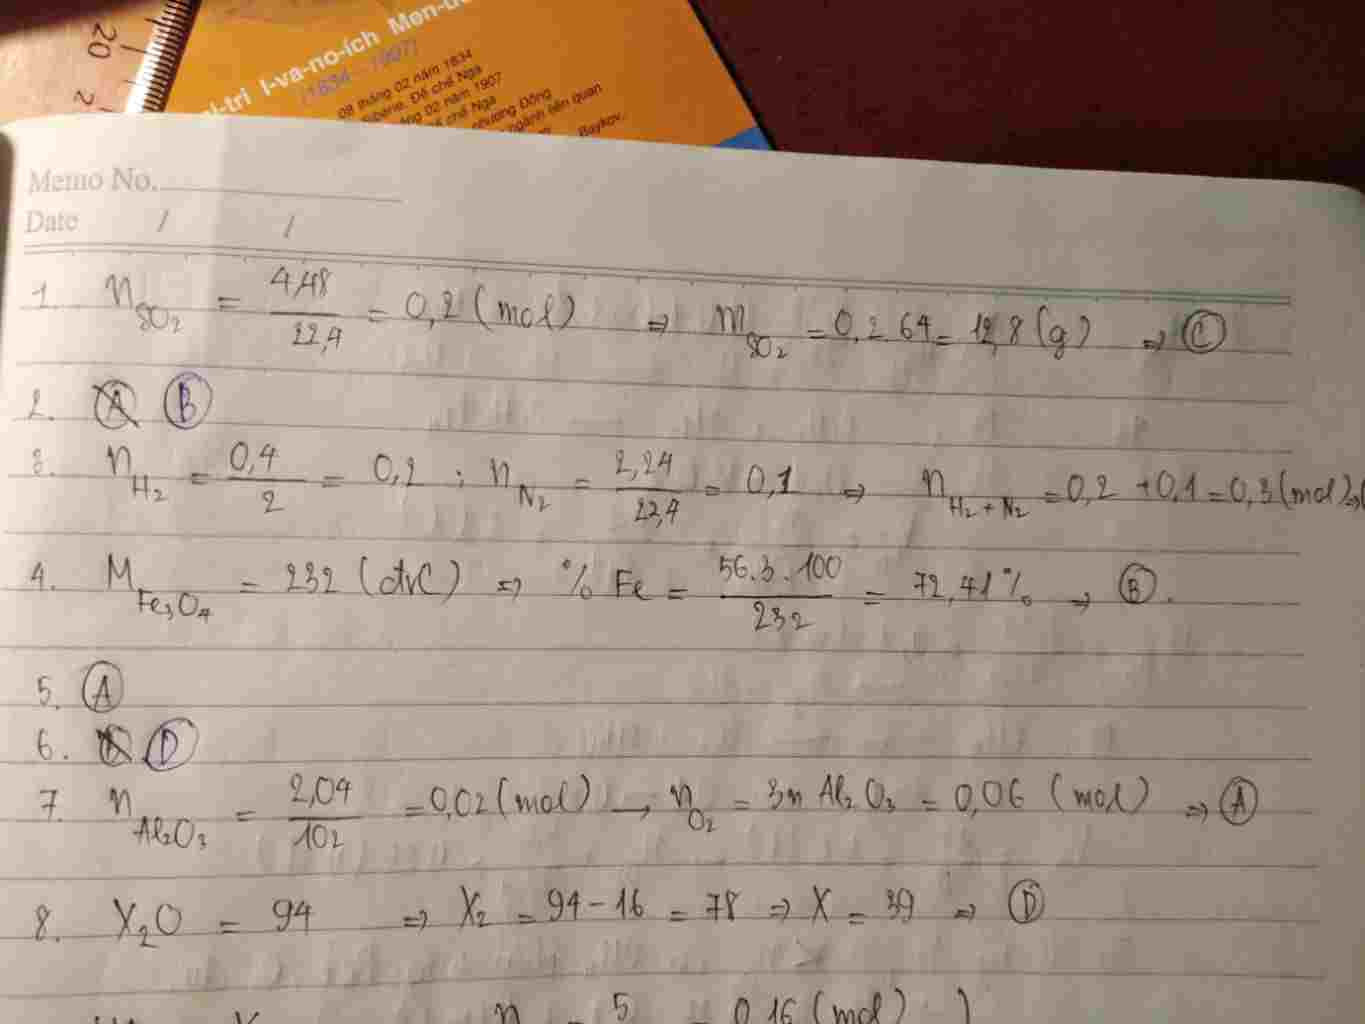 20
2
i-tri I-va-no-ích Men-
(1834 - 1907)
08 tháng 02 năm 1834
Đế chế Nga
02 năm 1907
chế Nga
phương Đông
ngành liên quan
Baykov.
Memo No.
Date / /
1. n SO2 = 4,48 / 22,4 = 0,2 (mol) => m SO2 = 0,2.64 = 12,8 (g) => C
2. A B
3. n H2 = 0,4 / 2 = 0,2 ; n N2 = 2,24 / 22,4 = 0,1 => n H2 + N2 = 0,2 + 0,1 = 0,3 (mol) =>
4. M Fe3O4 = 232 (đvC) => % Fe = 56.3.100 / 232 = 72,41% => B.
5. A
6. D
7. n Al2O3 = 2,04 / 102 = 0,02 (mol) → n O2 = 3n Al2O3 = 0,06 (mol) => A
8. X2O = 94 => X2 = 94 - 16 = 78 => X = 39 => D
n = 5 = 0,16 (mol) )